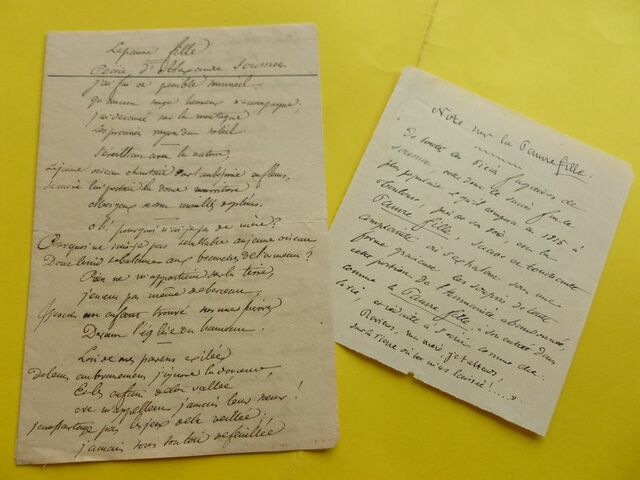 La pauvre fille
Poésie d'Alexandre Soumet
j'ai fui ce pénible sommeil
qu'aucun songe heureux n'accompagne,
j'ai devancé sur la montagne
Les premiers rayons du soleil
S'éveillant avec la nature,
Le jeune oiseau chantait sur l'aubépine en fleurs,
Sa mère lui portait la douce nourriture
mes yeux se sont mouillés de pleurs.
Oh! pourquoi n'ai-je pas de mère?
Pourquoi ne suis-je pas semblable au jeune oiseau
Dont le nid se balance aux branches de l'ormeau?
Rien ne m'appartient sur la terre,
je n'eus pas même de berceau,
je suis un enfant trouvé sur une pierre
Devant l'église du hameau.
Loin de mes parens exilée
de leurs embrassemens j'ignore la douceur,
Et les enfans de la vallée
ne m'appellent jamais leur sœur!
je ne partage pas les jeux de la veillée;
jamais sous son toit de feuillée
Note sur la Pauvre fille.
De toutes les Pièces fugitives de
Soumet
plus populaire
Toulouse, de la
Pauvre fille,
complainte où s'exhalent sous une
forme gracieuse les soupirs de toute
cette portion de l'humanité abandonnée,
comme la Pauvre fille, à son entrée dans
la vie, et réduite à s'écrier comme elle:
Reviens, ma mère, je t'attends
sur la pierre où tu m'as laissée!.....